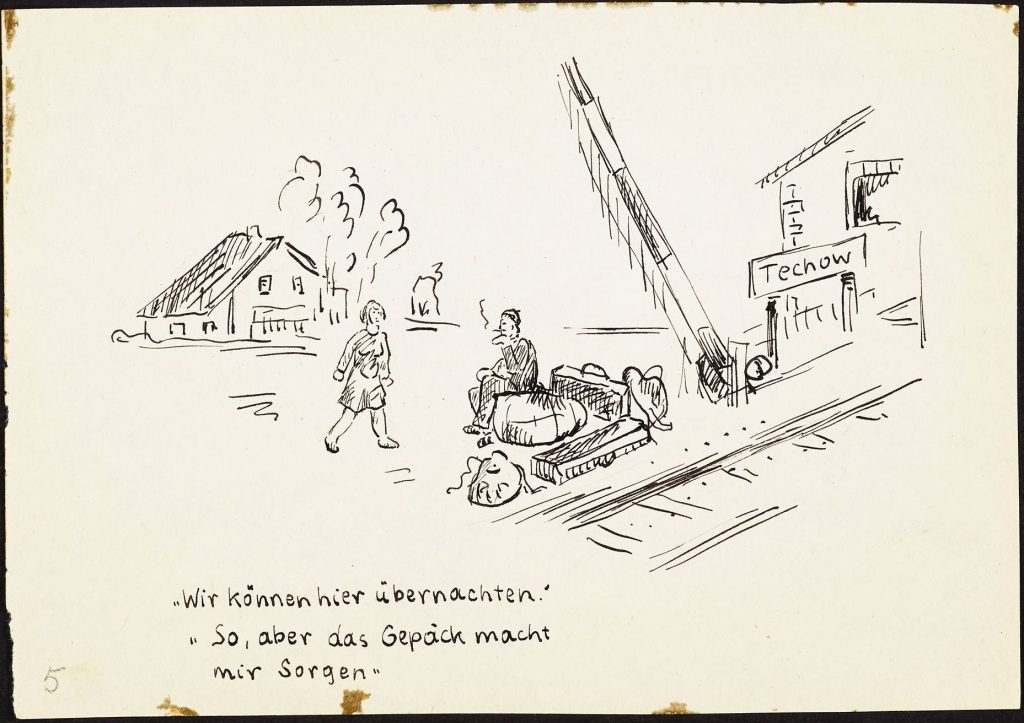 Techow
„Wir können hier übernachten."
" So, aber das Gepäck macht
mir Sorgen"
5